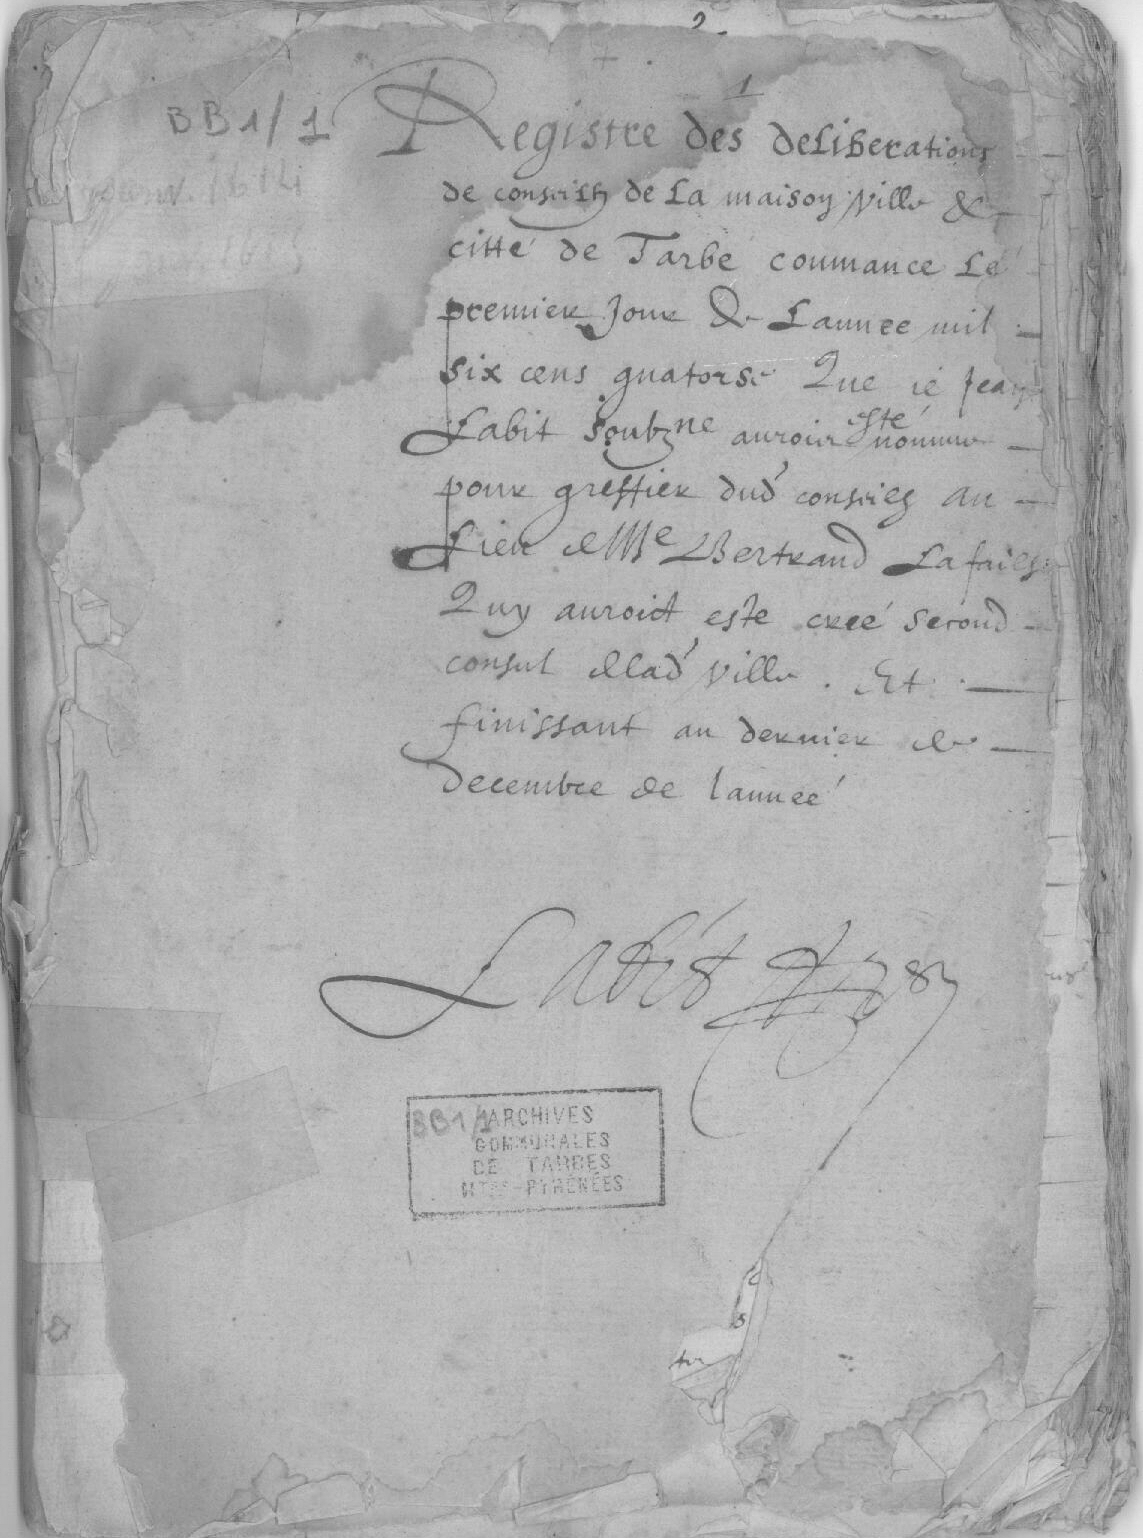 2
1
BB1/1
Registre des deliberations
de conseilh de La maison ville &
citté de Tarbe coumance Le
premier Jour de Lannee mil
six cens quatorse Que ie Jean
Labit soubzne auroir esté nomme
pour greffier dud conseilh au
Lieu de Me Bertrand Lafailhe
Quy auroict este creé second
consul de lad ville. Et
finissant au dernier de
decembre de lanneé
Labit
BB1/1
ARCHIVES
COMMUNALES
DE TARBES
HTES-PYRÉNÉES